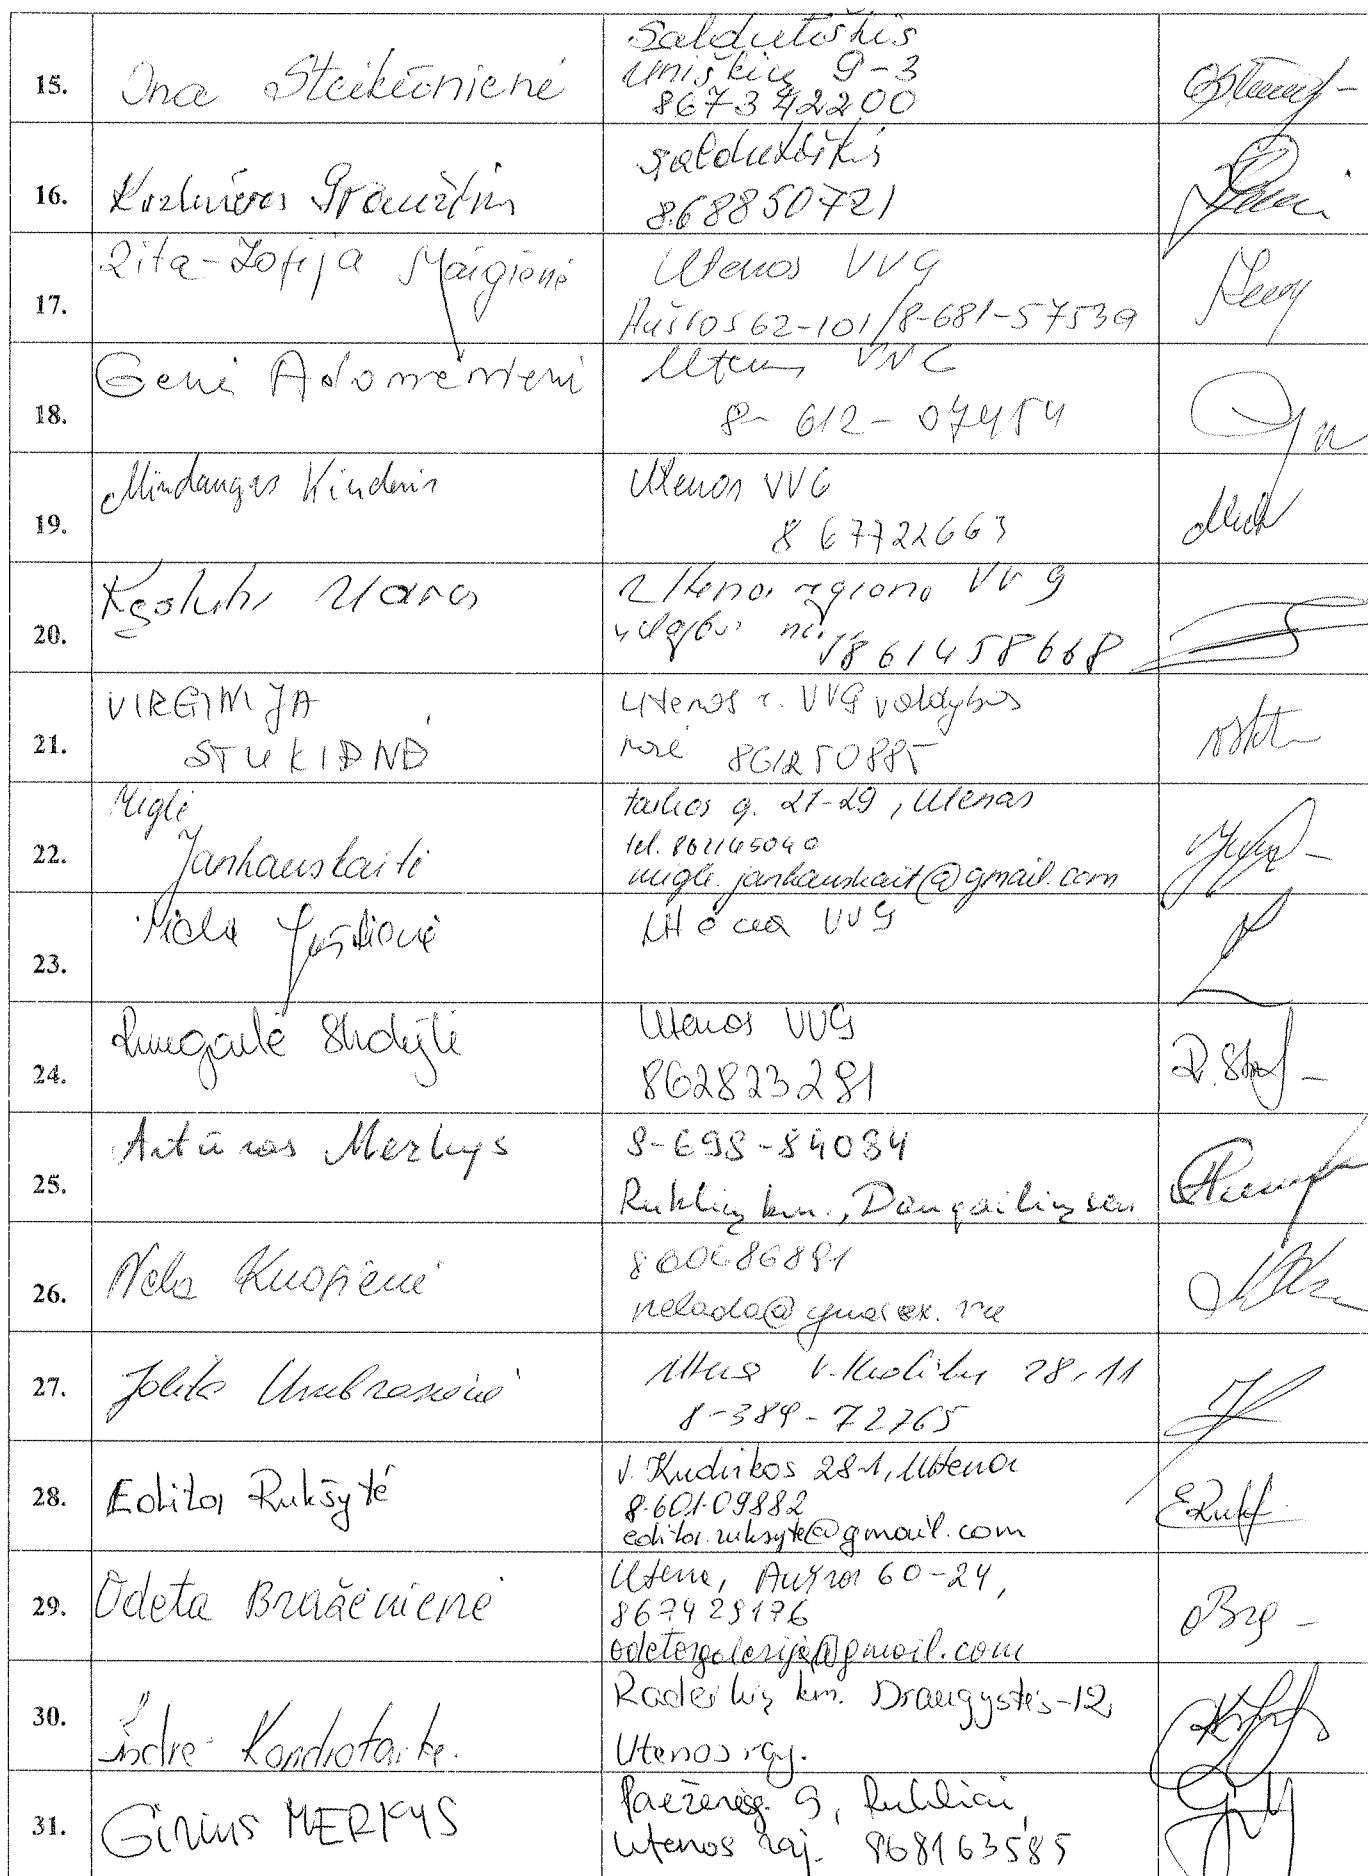 15. Ina Steikūnienė
Saldutiškis
Uniškių 9-3
867342200
16.
Saldutiškis
868850721
17. Zita-Zofija Maigienė
Utenos VVG
Aušros 62-101/8-681-57539
18. Genė Adomėnienė
VVG
8-612-07454
19. Mindaugas Kinderis
Utenos VVG
8 67722663
20. Kęstutis
regiono VVG
861458668
21. VIRGINIJA
STUKIENĖ
Utenos r. VVG valdybos
narė 861250885
22. Miglė
Jankauskaitė
g. 27-29, Utenas
tel. 862145040
migle.jankauskait@gmail.com
23.
VVG
24. Rimgailė Skodytė
Utenos VVG
862823281
25. Artūras Merkys
8-698-84084
Ruklių km., Daugailių sen
26. Nela Knopienė
860686891
27. Jolita Umbrasienė
Utena V. Kudirkos 28-11
8-389-72765
28. Edita Rukšytė
V. Kudirkos 28-1, Utena
8-601-09882
edita.ruksyte@gmail.com
E.Rukš
29. Odeta Bražėnienė
Utena, Aušros 60-24,
867429176
odetosgalerija@gmail.com
30. Indrė Kondrotaitė.
Radeikių km. Draugystės-12,
Utenos raj.
31. Girius MERKYS
Paežerės g. 9, Rukliai,
Utenos raj. 868163585